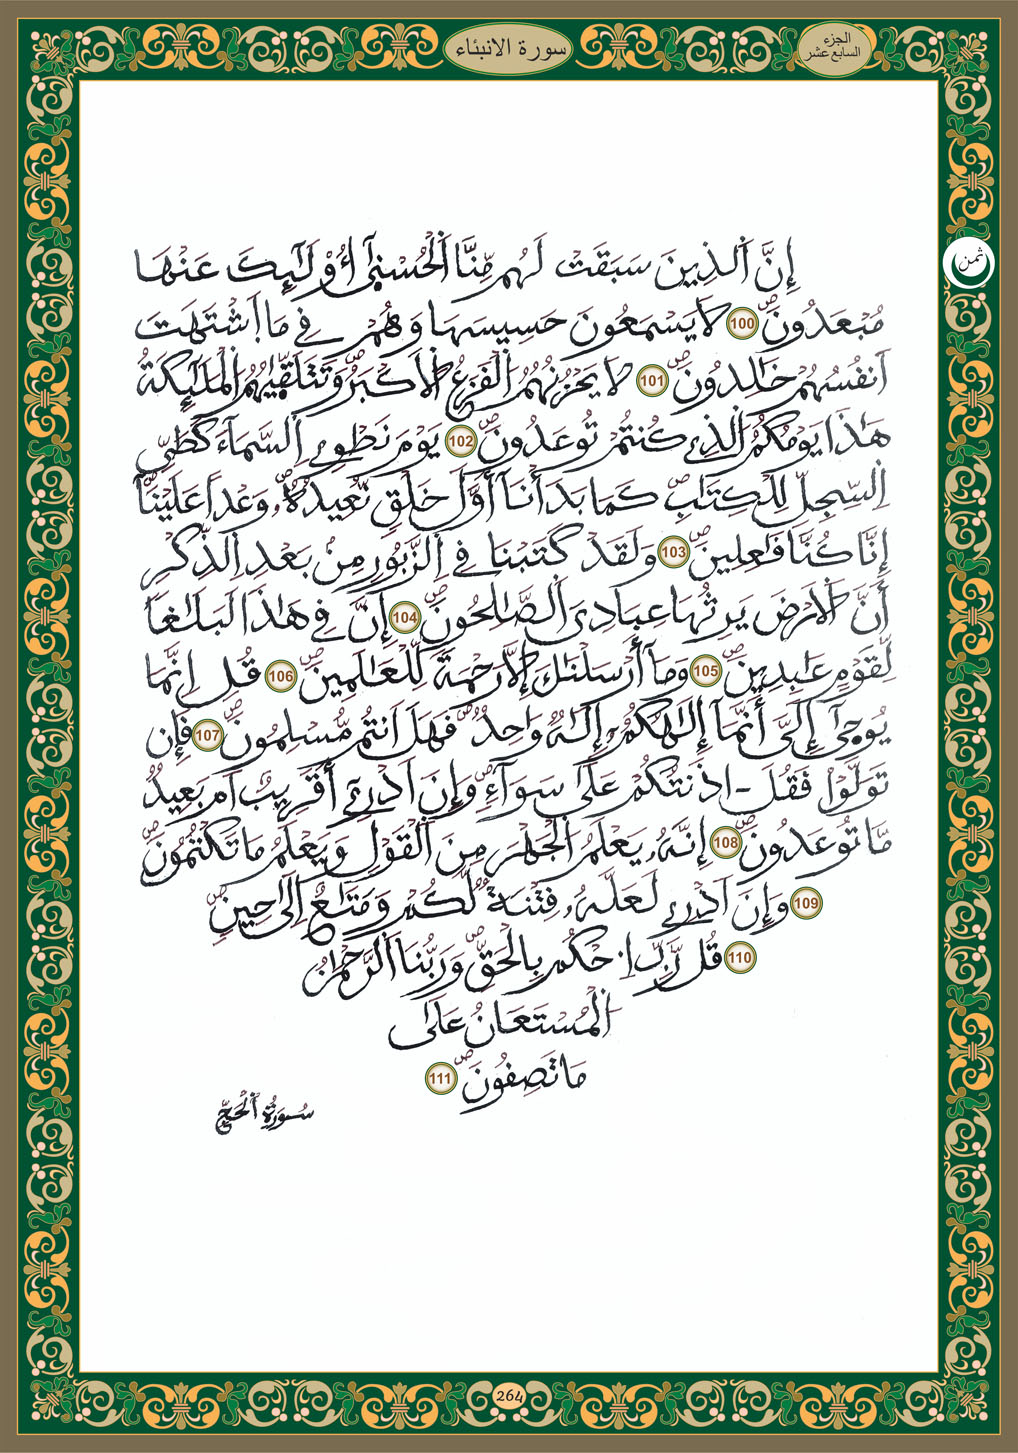 سورة الانبئاء
الجزء
السابع عشر
ثمن
إِنَّ اَ۬لذِينَ سَبَقَتْ لَهُم مِّنَّا اَ۬لْحُسْن۪ىٰٓ أُوْلَٰٓئِكَ عَنْهَا
مُبْعَدُونَۖ 100 لَا يَسْمَعُونَ حَسِيسَهَا وَهُمْ فِے مَا اَ۪شْتَهَتَ
اَنفُسُهُمْ خَٰلِدُونَۖ 101 لَا يَحْزُنُهُمُ اُ۬لْفَزَعُ اُ۬لَاكْبَرُۖ وَتَتَلَقّ۪يٰهُمُ اُ۬لْمَلَٰٓئِكَةُ
هَٰذَا يَوْمُكُمُ اُ۬لذِے كُنتُمْ تُوعَدُونَۖ 102 يَوْمَ نَطْوِے اِ۬لسَّمَآءَ كَطَيِّ
اِ۬لسِّجِلِّ لِلْكِتَٰبِۖ كَمَا بَدَأْنَآ أَوَّلَ خَلْقٖ نُّعِيدُهُۥۖ وَعْداً عَلَيْنَآ
إِنَّا كُنَّا فَٰعِلِينَۖ 103 وَلَقَدْ كَتَبْنَا فِے اِ۬لزَّبُورِ مِنۢ بَعْدِ اِ۬لذِّكْرِ
أَنَّ اَ۬لَارْضَ يَرِثُهَا عِبَادِيَ اَ۬لصَّٰلِحُونَۖ 104 إِنَّ فِے هَٰذَا لَبَلَٰغاٗ
لِّقَوْمٍ عَٰبِدِينَۖ 105 وَمَآ أَرْسَلْنَٰكَ إِلَّا رَحْمَةٗ لِّلْعَٰلَمِينَۖ 106 قُلِ اِنَّمَا
يُوح۪ىٰٓ إِلَيَّ أَنَّمَآ إِلَٰهُكُمُۥٓ إِلَٰهٞ وَٰحِدٞۖ فَهَلَ اَنتُم مُّسْلِمُونَۖ 107 فَإِن
تَوَلَّوْاْ فَقُلَ ـ اٰذَنتُكُمْ عَلَىٰ سَوَآءٖۖ وَإِنَ اَدْرِےٓ أَقَرِيبٌ اَم بَعِيدٞ
مَّا تُوعَدُونَۖ 108 إِنَّهُۥ يَعْلَمُ اُ۬لْجَهْرَ مِنَ اَ۬لْقَوْلِ وَيَعْلَمُ مَا تَكْتُمُونَۖ
109 وَإِنَ اَدْرِے لَعَلَّهُۥ فِتْنَةٞ لَّكُمْ وَمَتَٰعٌ اِلَىٰ حِينٖۖ
110 قُل رَّبِّ اِ۟حْكُم بِالْحَقِّۖ وَرَبُّنَا اَ۬لرَّحْمَٰنُ
اُ۬لْمُسْتَعَانُ عَلَىٰ
مَا تَصِفُونَۖ 111
سُورَةُ اُ۬لْحَجِّ
264